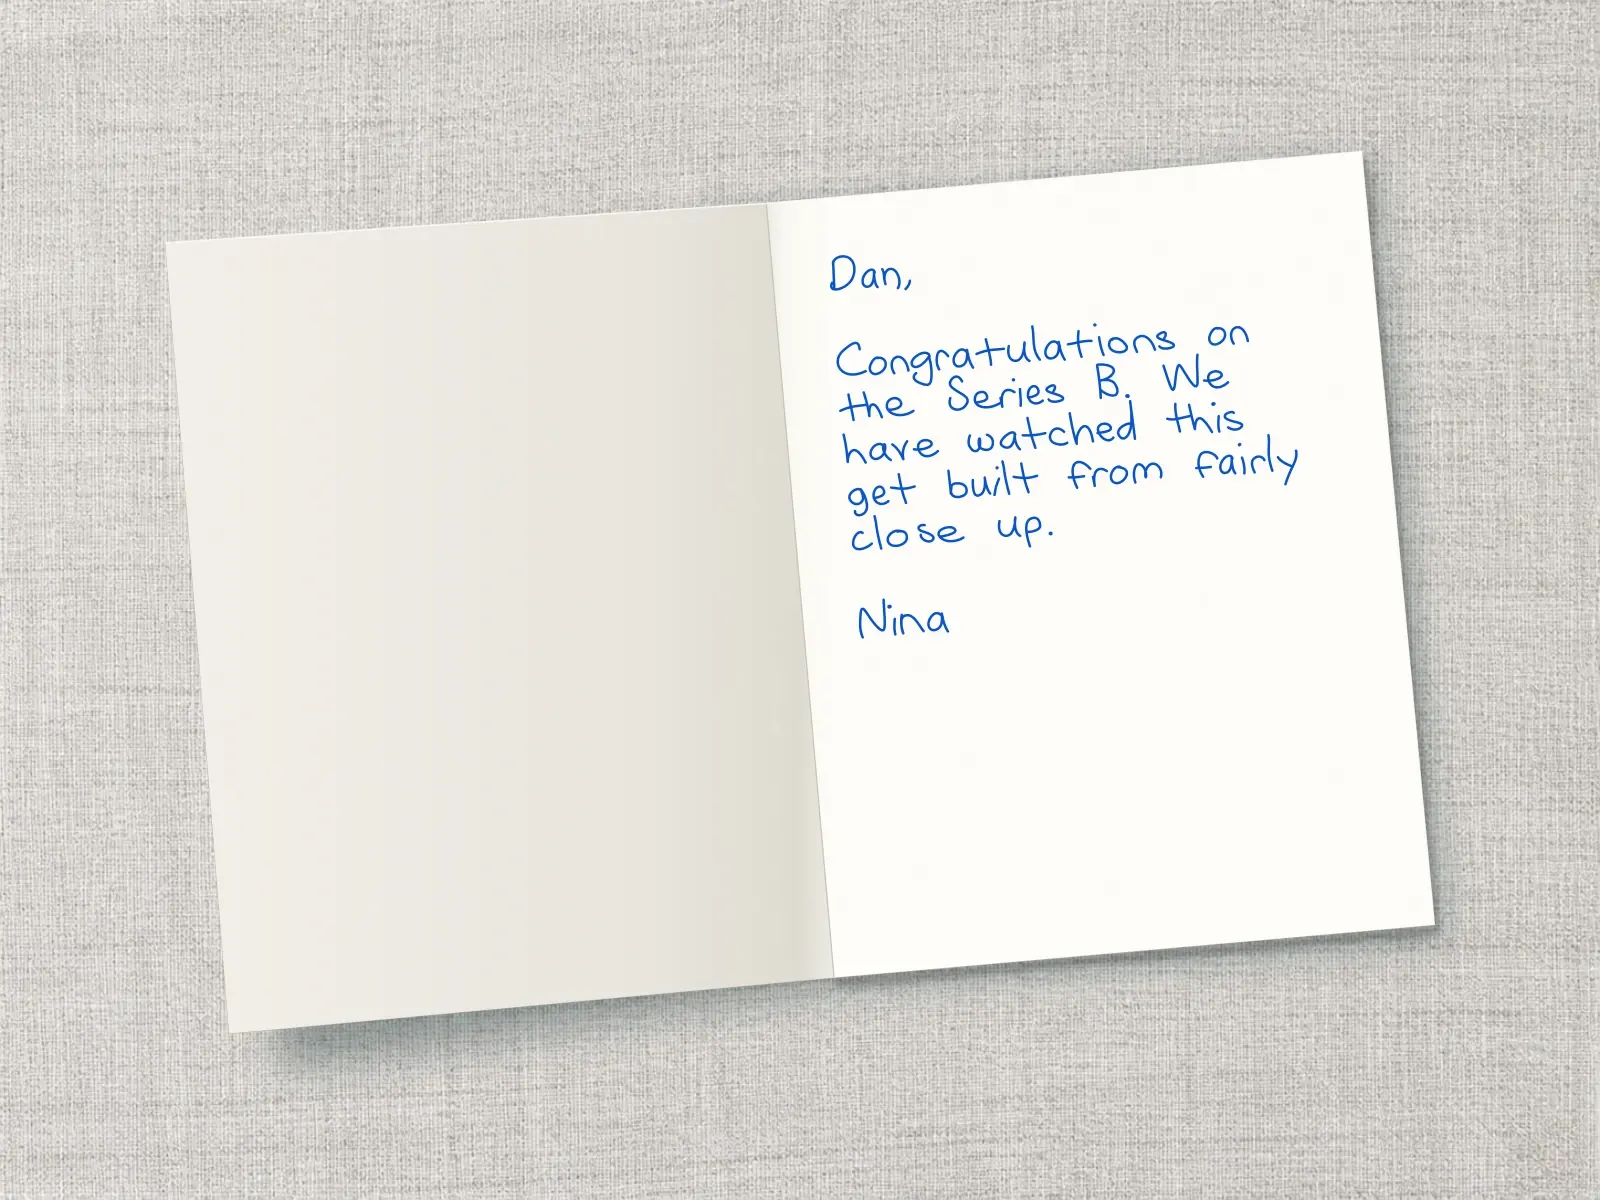 Dan,
Congratulations on
the Series B. We
have watched this
get built from fairly
close up.
Nina